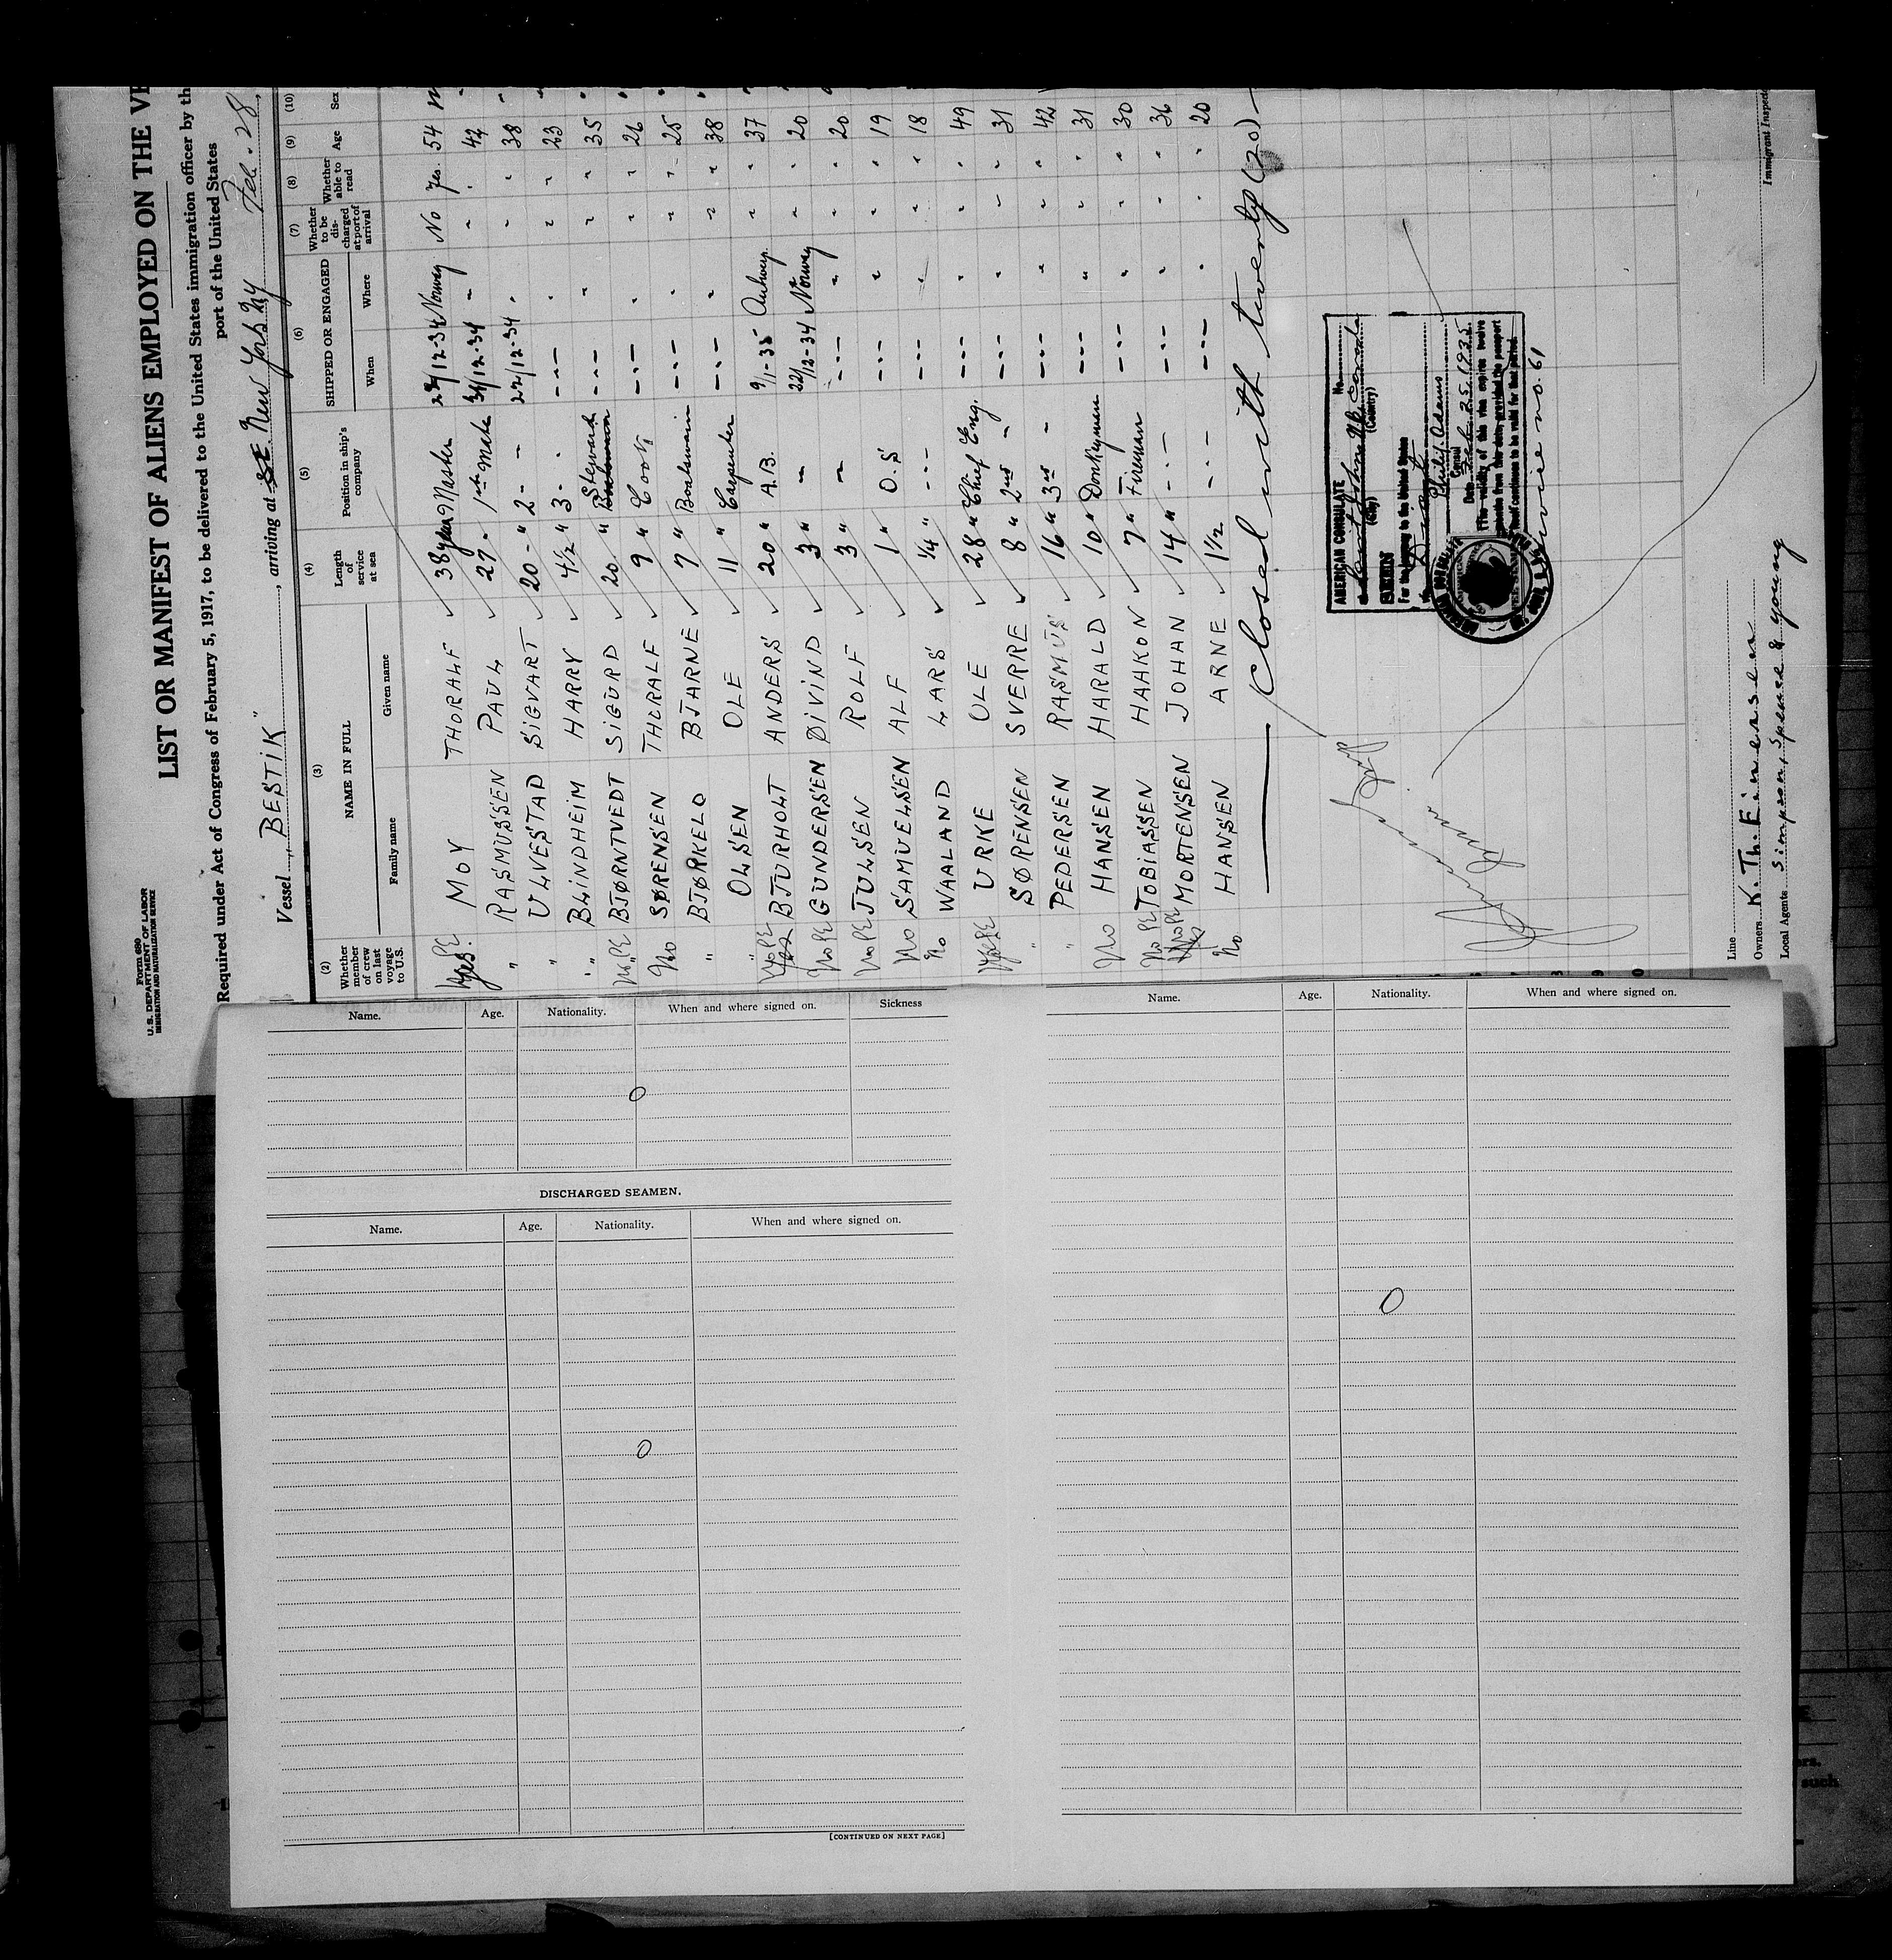 Form 680
U. S. DEPARTMENT OF LABOR
IMMIGRATION AND NATURALIZATION SERVICE
LIST OR MANIFEST OF ALIENS EMPLOYED ON THE VE
Required under Act of Congress of February 5, 1917, to be delivered to the United States immigration officer by th
port of the United States
Vessel "BESTIK", arriving at New York NY Feb. 28.
(2) (3) (4) (5) (6) (7) (8) (9) (10)
Whether member of crew on last voyage to U.S. NAME IN FULL Length of service at sea Position in ship's company SHIPPED OR ENGAGED Whether to be discharged at port of arrival Whether able to read Age Sex
Family name Given name When Where
Yes MOY THORALF 38 years Master 22/12-34 Norway No Yes 54 M
" RASMUSSEN PAUL 27 - 1st Mate /12-34 - " " 42 "
" ULVESTAD SIGVART 20 - " 2 - 22/12-34 " " " 38 "
" BLINDHEIM HARRY 4½ " 3 - --- " " " 23 "
No BJØRNTVEDT SIGURD 20 " Steward --- " " " 35 "
No SØRENSEN THORALF 9 " Cook --- " " " 26 "
" BJØRKELO BJARNE 7 " Boatswain --- " " " 25 "
" OLSEN OLE 11 " Carpenter --- " " " 38 "
BJURHOLT ANDERS 20 " A.B. 9/1-35 Antwerp " " 37 "
No GUNDERSEN ØIVIND 3 " - 22/12-34 Norway " " 20 "
No JULSEN ROLF 3 " - --- " " " 20 "
No SAMUELSEN ALF 1 " O.S --- " " " 19
No WAALAND LARS ¼ " --- --- " " " 18
URKE OLE 28 " Chief Eng. --- " " " 49
" SØRENSEN SVERRE 8 " 2nd - --- " " " 31
" PEDERSEN RASMUS 16 " 3rd - --- " " " 42
No HANSEN HARALD 10 " Donkeyman --- " " " 31
No TOBIASSEN HAAKON 7 " Fireman --- " " " 30
MORTENSEN JOHAN 14 " --- --- " " " 36
No HANSEN ARNE 1½ --- --- " " " 20
Closed with twenty (20)
AMERICAN CONSULATE No.
Saint John N.B. Canada
(City) (Country)
For the journey to the United States
Philip Adams
Consul
Date Feb. 25, 1935
The validity of this visa expires twelve
months from this date, provided the passport
itself continues to be valid for that period.
Service no. 61
Line
Owners K. Th. Einersen
Local Agents Simpson, Spence & Young
Immigrant Inspec
Name. Age. Nationality. When and where signed on. Sickness
0
DISCHARGED SEAMEN.
Name. Age. Nationality. When and where signed on.
0
[CONTINUED ON NEXT PAGE]
Name. Age. Nationality. When and where signed on.
0
such